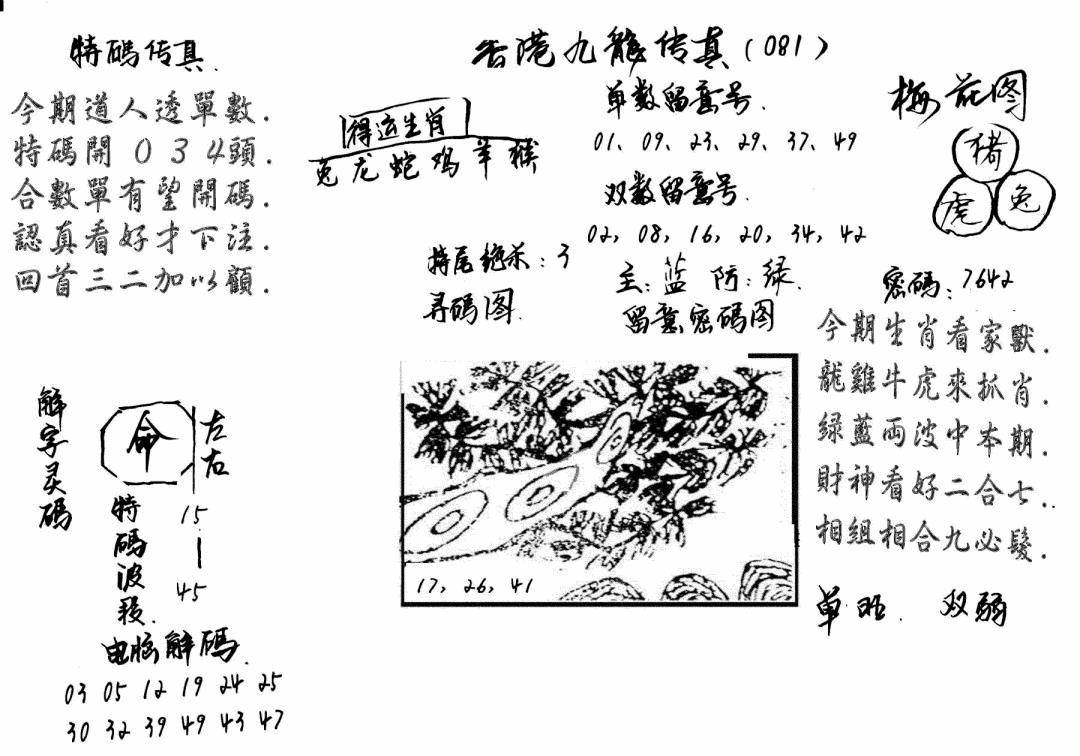 特碼传真.
今期道人透單數.
特碼開034頭.
合數單有望開碼.
認真看好才下注.
回首三二加以顧.
香港九龍传真(081)
得运生肖
兔龙蛇鸡羊猴
单数留意号.
01、09、23、29、37、49
双数留意号
02, 08, 16, 20, 34, 42
特尾绝杀:3
主:蓝 防:绿
寻码图
留意密码图
17, 26, 41
梅花图
猪
虎 兔
密碼:7642
今期生肖看家獸.
龍雞牛虎來抓肖.
綠藍両波中本期.
財神看好二合七..
相組相合九必髮.
单旺. 双弱
解字灵碼
命
左右
特碼波段.
15
45
电脑解碼.
03 05 12 19 24 25
30 32 39 49 43 47